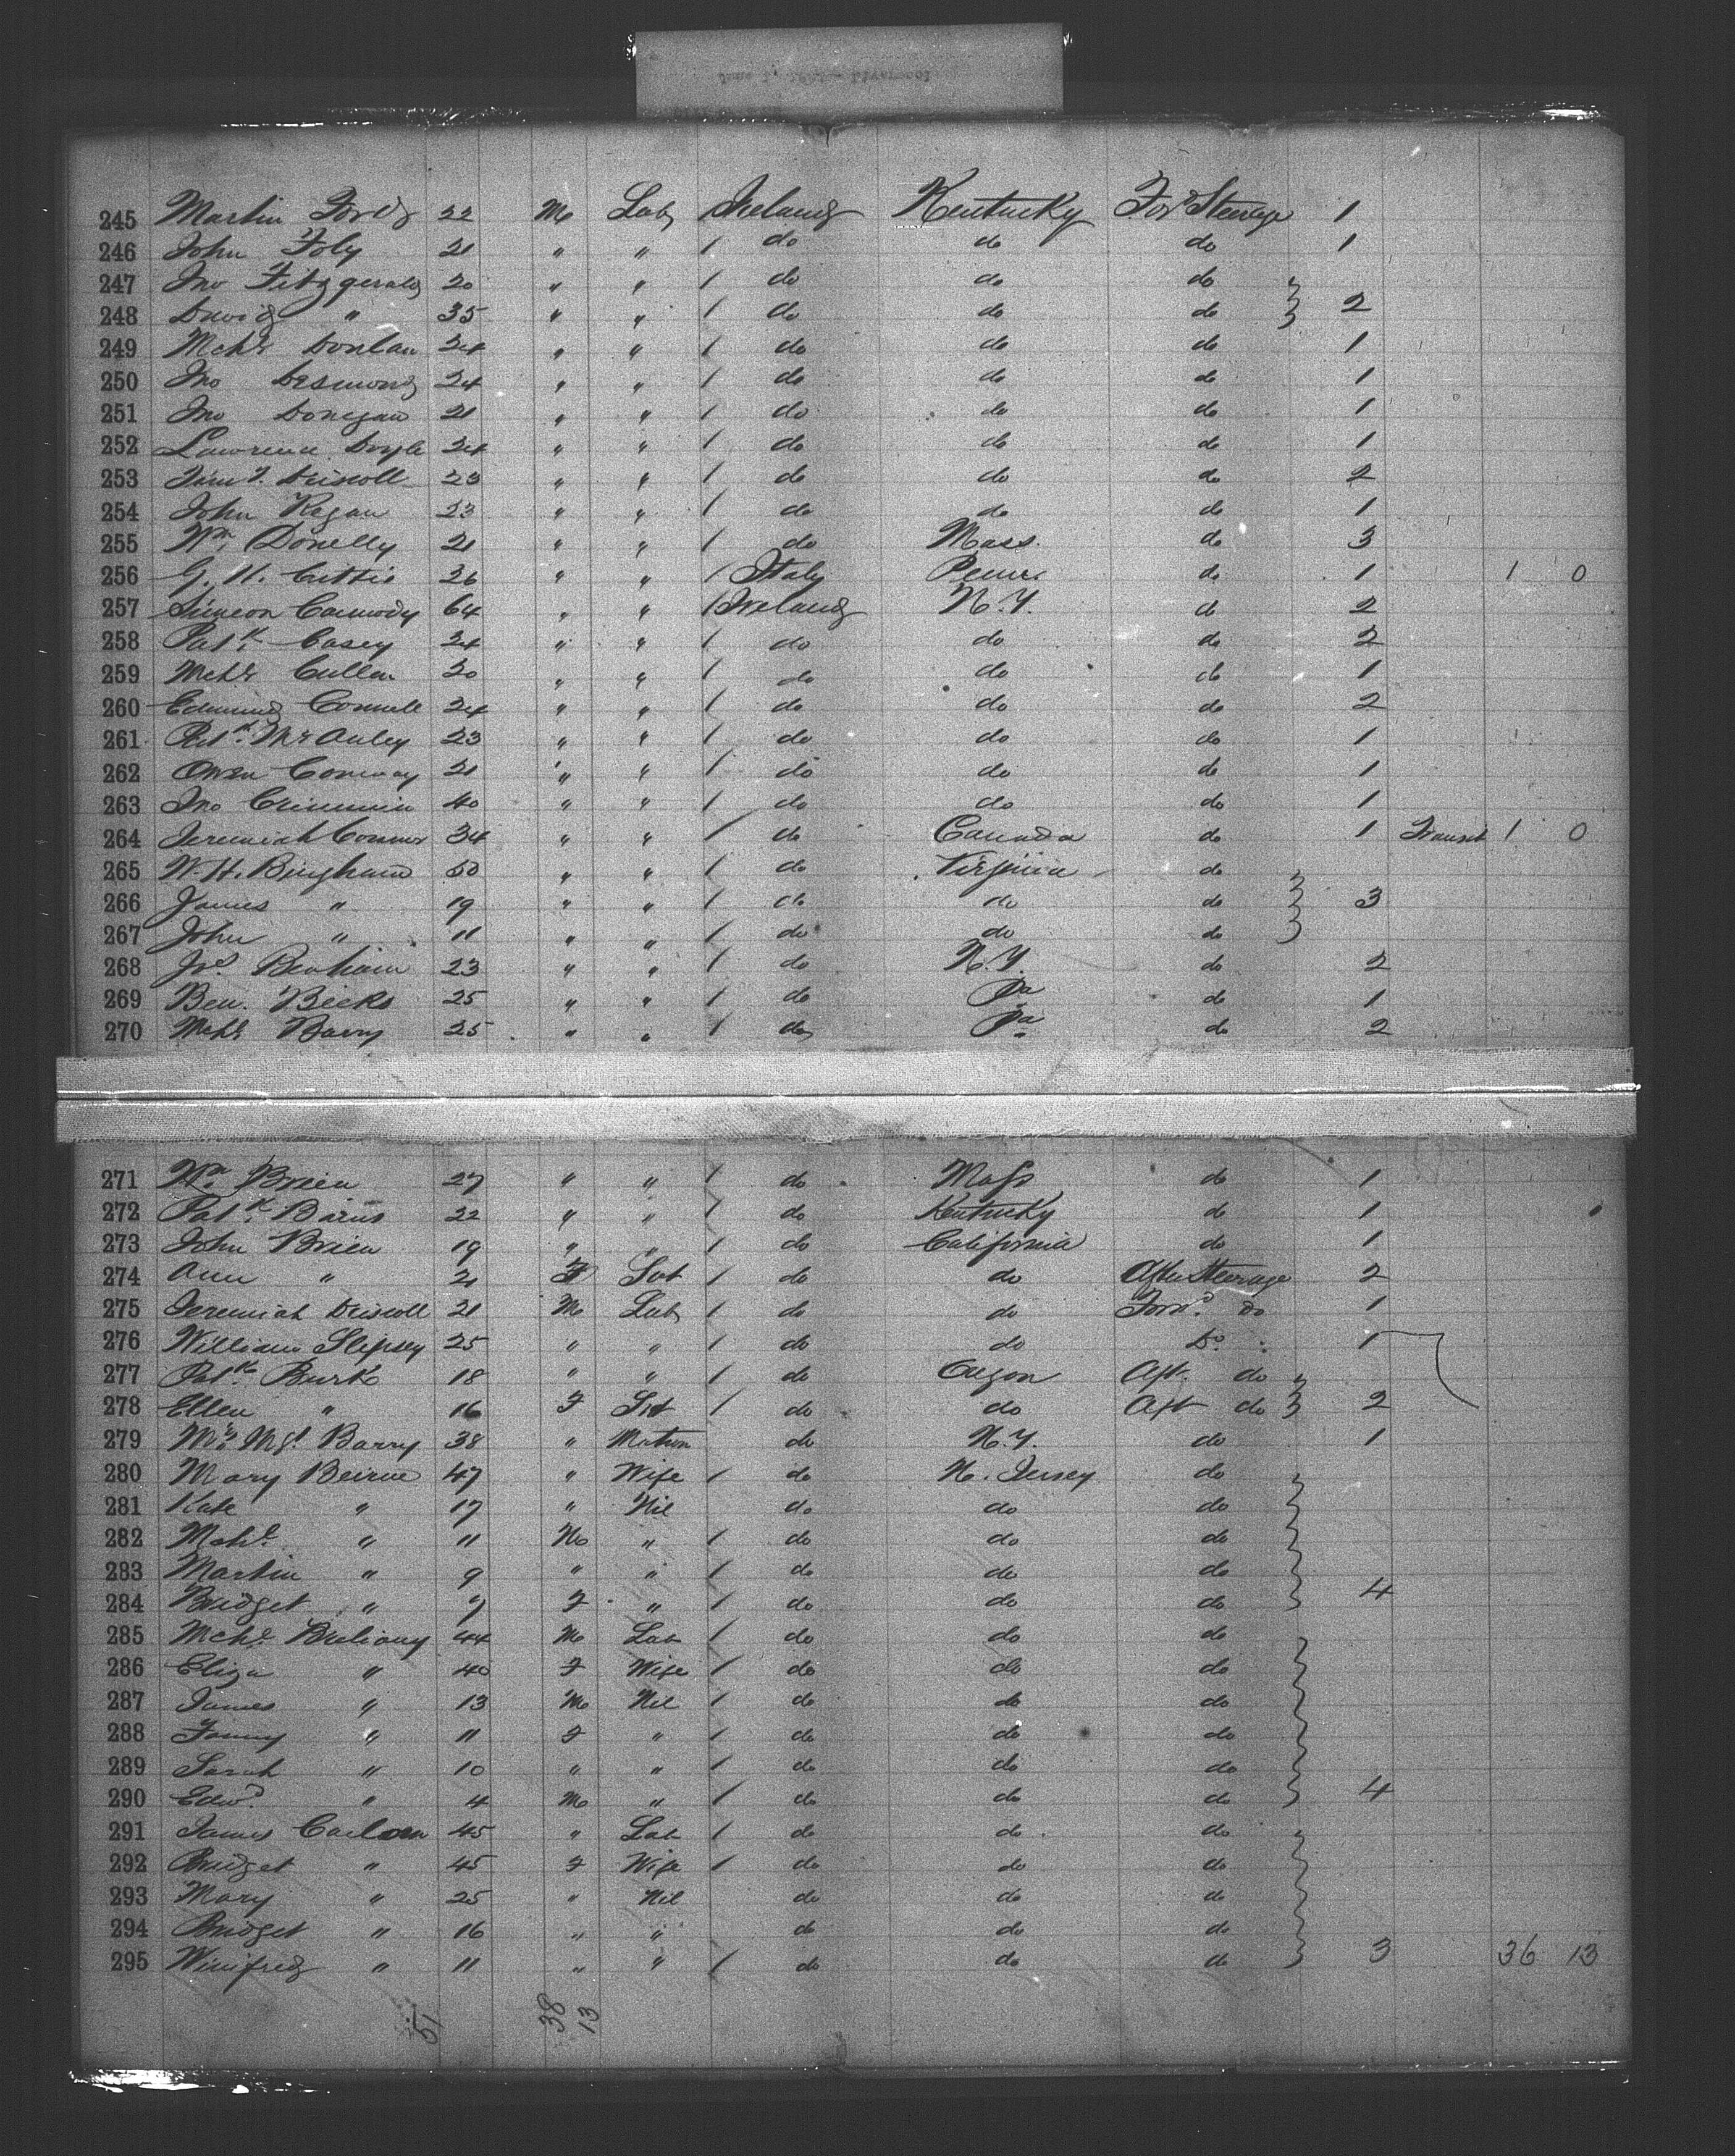 245 Martin Ford 22 M Lab 1 Ireland Kentucky For Steerage 1
246 John Foly 21 " " 1 do do do 1
247 Jno Fitzgerald 20 " " 1 do do do
248 David " 35 " " 1 do do do 2
249 Mchl Donlan 24 " " 1 do do do 1
250 Jno Desmond 24 " " 1 do do do 1
251 Jno Donegan 21 " " 1 do do do 1
252 Lawrence Doyle 24 " " 1 do do do 1
253 Driscoll 23 " " 1 do do do 2
254 John Regan 23 " " 1 do do do 1
255 Wm Donelly 21 " " 1 do Mass. do 3
256 G. H. 26 " " 1 Italy Penn. do 1 1 0
257 Simeon Carmody 64 " " 1 Ireland N.Y. do 2
258 Patk Casey 24 " " 1 do do do 2
259 Mchl Cullen 20 " " 1 do do do 1
260 Edmund Connell 24 " " 1 do do do 2
261 Patk McAuley 23 " " 1 do do do 1
262 Owen Conway 21 " " 1 do do do 1
263 Jno Crimmin 40 " " 1 do do do 1
264 Jeremiah Connor 34 " " 1 do Canada do 1 Transit 1 0
265 W. H. Bingham 50 " " 1 do Virginia do
266 James " 19 " " 1 do do do 3
267 John " 11 " " 1 do do do
268 Jos. 23 " " 1 do N.Y. do 2
269 Ben. Beeks 25 " " 1 do Pa do 1
270 Mchl Barry 25 " " 1 do Pa do 2
271 Wm Brien 27 " " 1 do Mass do 1
272 Patk Barns 22 " " 1 do Kentucky do 1
273 John Brien 19 " " 1 do California do 1
274 Ann " 21 F 1 do do After Steerage 2
275 Jeremiah Driscoll 21 M Lab 1 do do Forwd. do 1
276 William Slipsey 25 " " 1 do do Do 1
277 Patk Burk 18 " " 1 do Oregon Aft. do
278 Ellen " 16 F 1 do do Aft do 2
279 Mrs Mgt Barry 38 " Matron do N.Y. do 1
280 Mary Beirne 47 " Wife 1 do N. Jersey do
281 Kate " 17 " Nil do do do
282 Mchl. " 11 M " 1 do do do
283 Martin " 9 " " 1 do do do
284 Bridget " 7 F " 1 do do do 4
285 Mchl. 44 M Lab 1 do do do
286 Eliza " 40 F Wife 1 do do do
287 James " 13 M Nil 1 do do do
288 Fanny " 11 F " 1 do do do
289 Sarah " 10 " " 1 do do do
290 Edwd " 4 M " 1 do do do 4
291 James 45 " Lab 1 do do do
292 Bridget " 45 F Wife 1 do do do
293 Mary " 25 " Nil do do do
294 Bridget " 16 " " do do do
295 Winifred " 11 " " 1 do do do 3 36 13
51 38 13